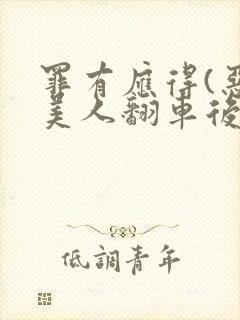 罪有應得(惡
美人翻車後
低調青年